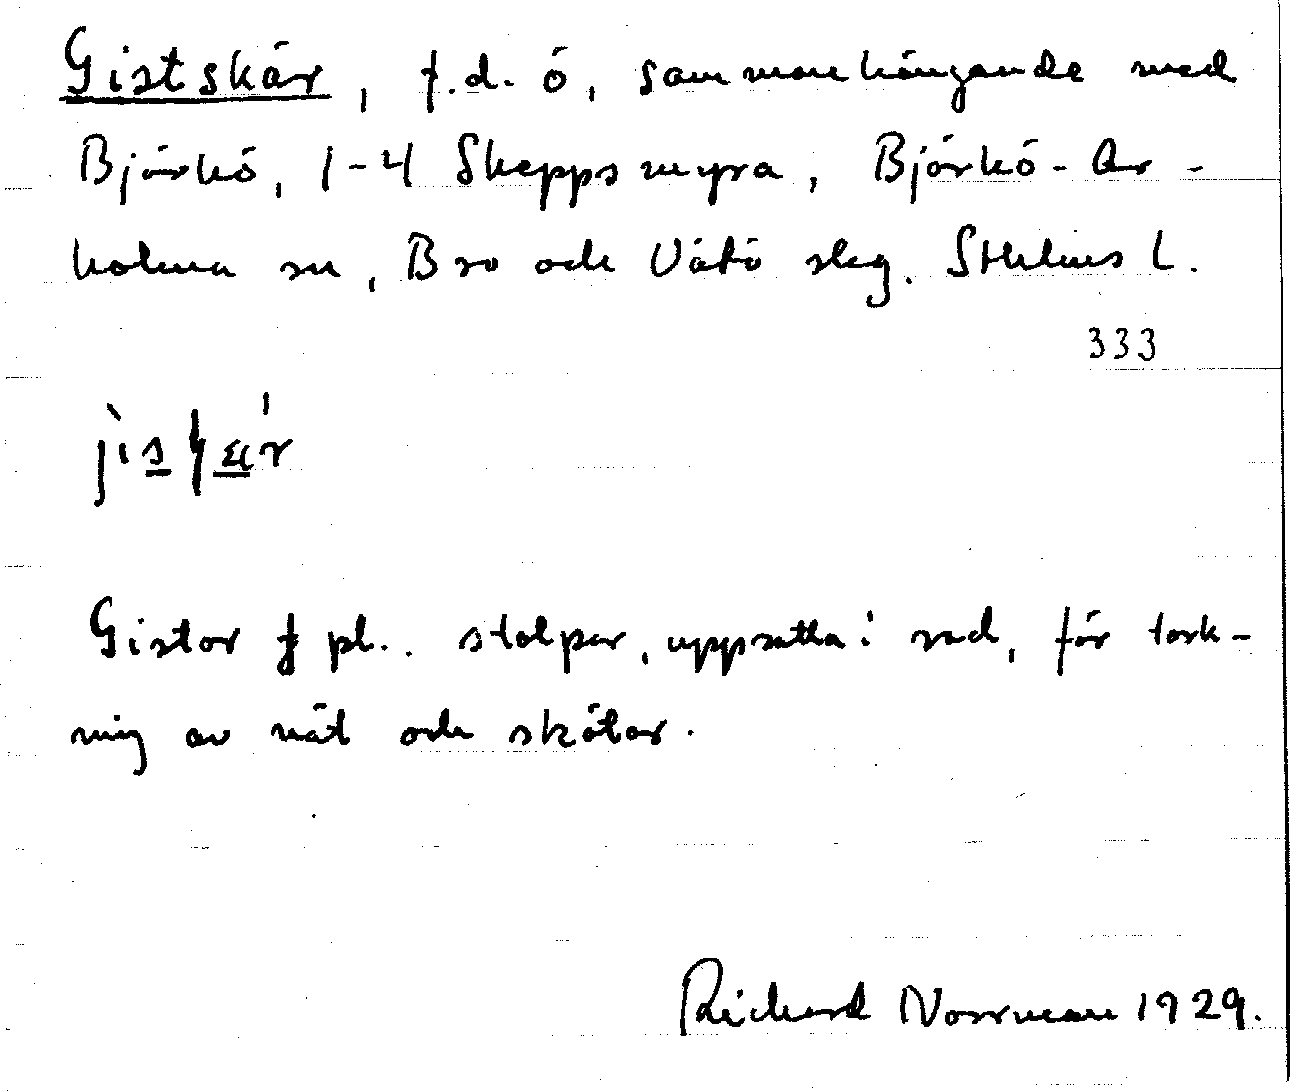 Gistskär, f.d. ö, sammanhängande med
Björkö, 1-4 Skeppsmyra, Björkö-Ar-
holma sn, Bro och Vätö slag. Sthlms l.
333
Gistor f pl.. stolpar, uppsatta i rad, för tork-
ning av nät och skötar.
Richard Norrman 1929.